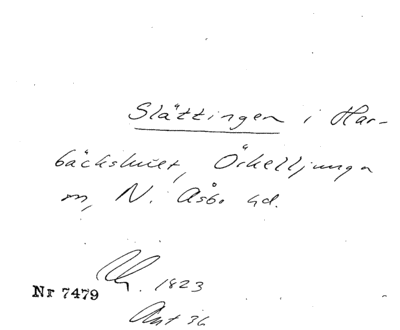 Slättingen i Har-
bäckshult, Örkelljunga
sn, N. Åsbo hd.
1823
Nr 7479
Avt 36